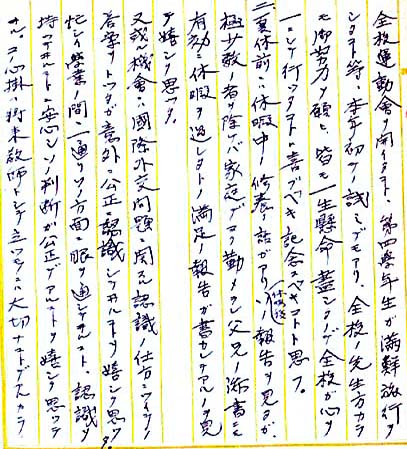 全校運動會ヲ開イタリ、第四學年生が滿鮮旅行ヲ
シタリ等、本年初メテノ試ミデモアリ、全校ノ先生方カラ
モ御努力ヲ願ヒ、皆モ一生懸命盡シタノデ全校が心ヲ
一ニシテ行ツタコトハ喜ブベキ記念スベキコトト思フ。
二、夏休前ニ休暇中ノ修養ノ話がアリ、ソノ(休暇後)報告ヲ見ルガ、
極少数ノ者ヲ除ケバ家庭デヨク勤メタシ、父兄ノ添書ニモ
有効ニ休暇ヲ過シタトノ滿足ノ報告が書カレテアルノヲ見
テ嬉シク思ツタ。
又或ル機會ニ國際外交問題ニ関スル認識ノ仕方ニツイテノ
答案ヲトツタガ意外ニ公正ニ認識シテヰルコトヲ嬉シク思ツタ。
忙シイ學業ノ間ニ一通リソノ方面ニ眼ヲ通シテヰルコト、認識ヲ
持ツテヰルコトニ安心シ、ソノ判断が公正デアルコトヲ嬉シク思ツテ
ヰル。コノ心掛ハ將來教師トシテ立ツタメニ大切ナコトデスカラ、